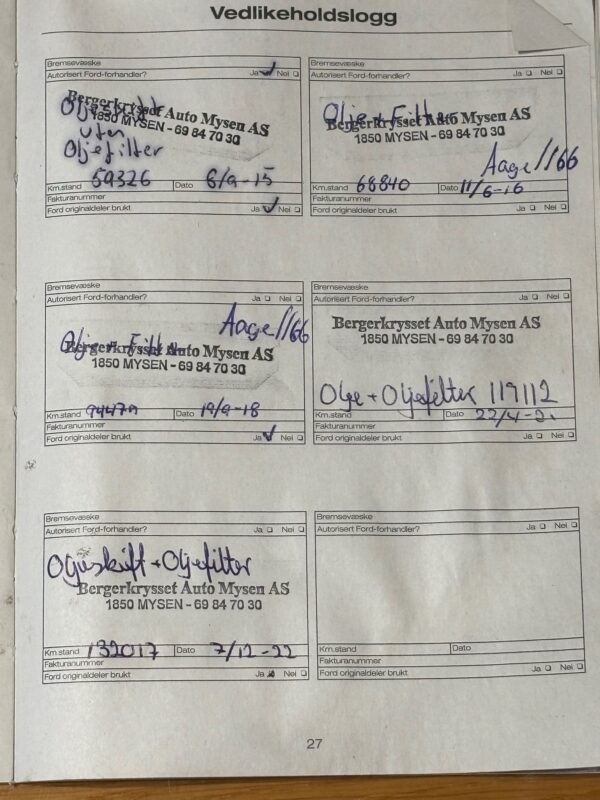 Vedlikeholdslogg
Bremsevæske
Autorisert Ford-forhandler? Ja Nei
Bergerkrysset Auto Mysen AS
1850 MYSEN - 69 84 70 30
uten
Oljefilter
Km.stand 59326 Dato 6/9-15
Fakturanummer
Ford originaldeler brukt Ja Nei
Bremsevæske
Autorisert Ford-forhandler? Ja Nei
Olje + Filter
Bergerkrysset Auto Mysen AS
1850 MYSEN - 69 84 70 30
Aage
Km.stand 68840 Dato 11/6-16
Fakturanummer
Ford originaldeler brukt Ja Nei
Bremsevæske
Autorisert Ford-forhandler? Ja Nei
Aage
Olje + Filter
Bergerkrysset Auto Mysen AS
1850 MYSEN - 69 84 70 30
Km.stand 94479 Dato 19/9-18
Fakturanummer
Ford originaldeler brukt Ja Nei
Bremsevæske
Autorisert Ford-forhandler? Ja Nei
Bergerkrysset Auto Mysen AS
1850 MYSEN - 69 84 70 30
Olje + Oljefilter 119112
Km.stand Dato
Fakturanummer
Ford originaldeler brukt Ja Nei
Bremsevæske
Autorisert Ford-forhandler? Ja Nei
Ojeskift + Oljefilter
Bergerkrysset Auto Mysen AS
1850 MYSEN - 69 84 70 30
Km.stand 132017 Dato 7/12-22
Fakturanummer
Ford originaldeler brukt Ja Nei
Bremsevæske
Autorisert Ford-forhandler? Ja Nei
Km.stand Dato
Fakturanummer
Ford originaldeler brukt Ja Nei
27